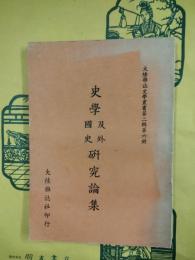 大陸雜誌史學叢書第二輯第六冊
史學及外國史研究論集
大陸雜誌社印行